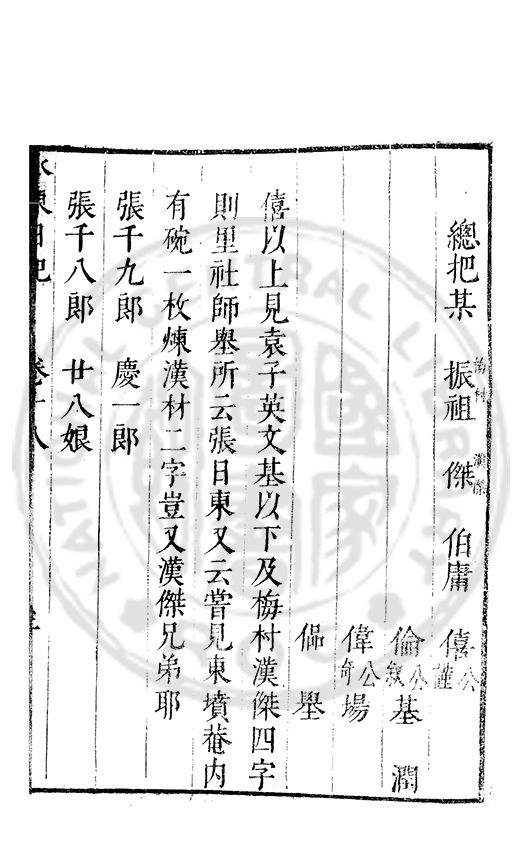 總把某 振祖 梅村 傑 漢傑 伯庸 僖 公謹
倫 公敘 基 潤
偉 公奇 場
傓 舉
僖以上見袁子英文基以下及梅村漢傑四字
則里社師舉所云張日東又云嘗見東墳菴內
有碗一枚煉漢材二字豈又漢傑兄弟耶
張千九郎 慶一郎
張千八郎 廿八娘
水東日記 卷十八